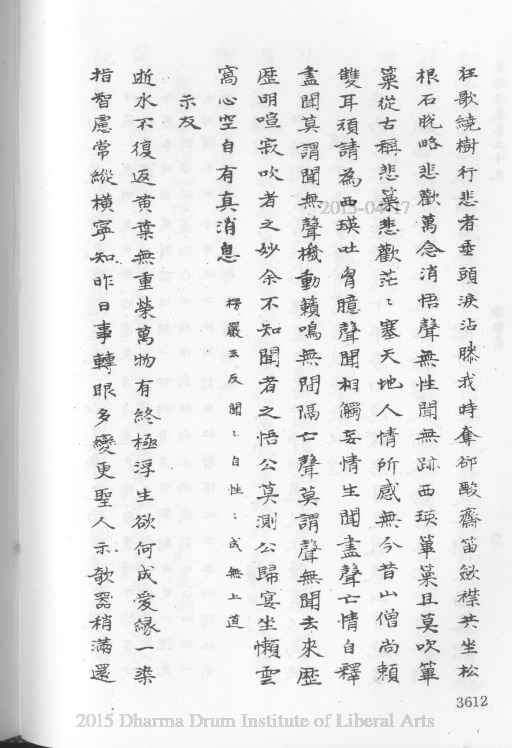 狂歌繞樹行悲者垂頭淚沾膝我時奪卻酸齋笛斂襟共坐松
根石脫略悲歡萬念消悟聲無性聞無跡西瑛篳篥且莫吹篳
篥從古稱悲篥悲歡茫〻塞天地人情所感無今昔山僧尚賴
雙耳頑請為西瑛吐胷臆聲聞相觸妄情生聞盡聲亡情自釋
盡聞莫謂聞無聲機動籟鳴無間隔亡聲莫謂聲無聞去來歷
歷明喧寂吹者之妙余不知聞者之悟公莫測公歸宴坐懶雲
窩心空自有真消息　楞嚴云反聞〻自性〻成無上道
示友
逝水不復返黃葉無重榮萬物有終極浮生欲何成愛緣一染
指智慮常縱橫寧知昨日事轉眼多變更聖人示欹器稍滿還
3612
2013-04-17
2015 Dharma Drum Institute of Liberal Arts